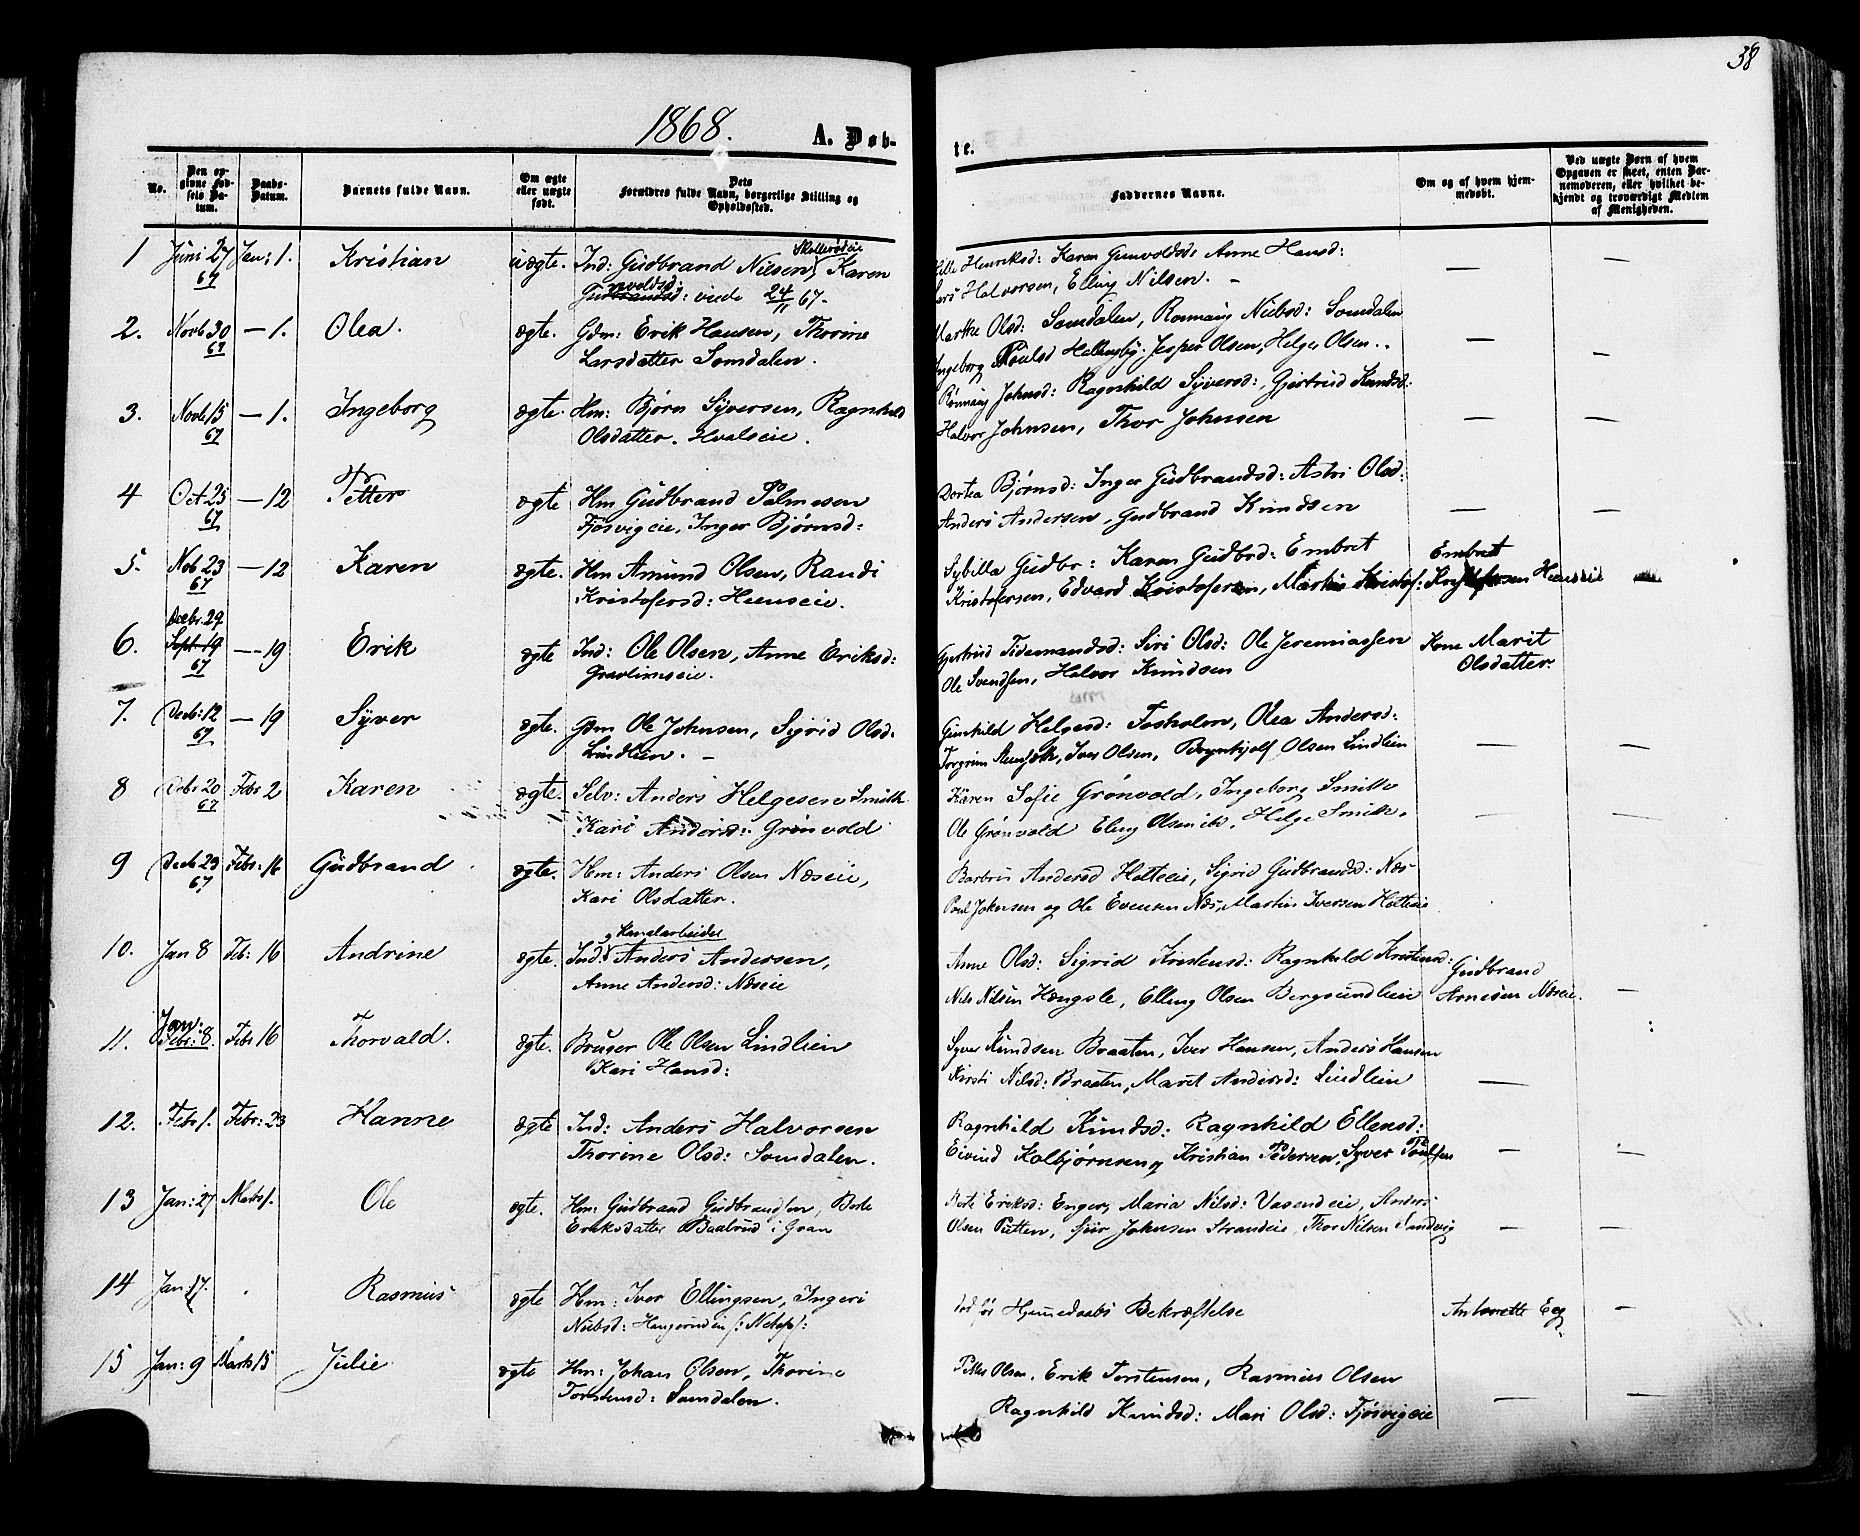 38
1868.
A. Døb-
te.
No.
Den opgivne Fødsels Datum.
Daabs-Datum.
Barnets fulde Navn.
Om ægte eller uægte født.
Dets Forældres fulde Navn, borgerlige Stilling og Opholdssted.
Faddernes Navne.
Om og af hvem hjemmedøbt.
Ved uægte Børn af hvem Opgaven er skeet, enten Barnemoderen, eller hvilket bekjendt og troværdigt Medlem af Menigheden.
1 Juni 27 67 Jan: 1. Kristian uægte. Ind: Gudbrand Nilsen, Karen
viede 24/11 67.
Henriksd: Karen Gunvoldsd: Anne Hansd:
Lars Halvorsen, Elling Nilsen. —
2. Novb 30 67 — 1. Olea. ægte. Gdm: Erik Hansen, Thorine
Larsdatter Somdalen.
Marthe Olsd: Somdalen, Rønnaug Nubsd: Somdalen
Ingeborg Paulsd Jesper Olsen, Helge Olsen.
3. Novb 15 67 — 1. Ingeborg ægte. Hm: Bjørn Syversen, Ragnhild
Olsdatter. Hvalseie.
Rønnaug Johnsd: Ragnhild Syversd:, Gjertrud Knudsd:
Halvor Johnsen, Thor Johnsen
4 Oct 25 67 — 12 Petter ægte Hm Gudbrand Palmesen
Fjøsvigeie, Inger Bjørnsd:
Dortea Bjørnsd: Inger Gudbrandsd: Astri Olsd:
Anders Andersen, Gudbrand Knudsen
5. Nob 23 67 — 12 Karen ægte. Hm Amund Olsen, Randi
Kristofersd: Hemseie.
Sybilla Gudbr: Karen Gudbrd: Embret
Kristofersen, Edvard Kristofersen,
Embret
6. Decbr. 29 Sept 19 67 — 19 Erik ægte Ind: Ole Olsen, Anne Eriksd:
Gjertrud Tidemandsd: Siri Olsd: Ole Jeremiassen
Ole Svendsen, Halvor Knudsen
Kone Marit
Olsdatter
7. Decb: 12 67 — 19 Syver ægte. Gdm Ole Johnsen, Sigrid Olsd:
Lindlien. —
Gunhild Helgesd: Fosholm, Olea Andersd:
Iver Olsen, Olsen Lindlien
8 Debr 20 67 Febr 2 Karen ægte. Selv: Anders Helgesen Smith
Kari Andersd: Grønvold
Karen Sofie Grønvold, Ingeborg Smith
Ole Grønvold Helge Smith.
9 Decb 29 67 Febr: 16 Gudbrand ægte. Hm: Anders Olsen Næseie,
Kari Olsdatter.
Andersd Holteeie, Sigrid Gudbrandsd: Næs
Poul Johnsen og Ole Evensen Næs, Martin Iversen Holteeie
10. Jan 8 Feb: 16 Andrine ægte. Ind: Kanalarbeider Anders Andersen,
Anne Andersd: Næseie
Anne Olsd: Sigrid Kristensd: Ragnhild Kristensd:
Nils Nilsen Hængsle, Elling Olsen Bergsundlien
Gudbrand
Arnesen Næseie.
11. Jan: Febr: 8. Febr 16 Thorvald. ægte. Bruger Ole Olsen Lindlien
Kari Hansd:
Syver Knudsen Braaten, Iver Hansen, Anders Hansen
Kirsti Nilsd: Braaten, Marit Andersd: Lindlien
12. Febr 1. Febr: 23 Hanne ægte Ind: Anders Halvorsen
Thorine Olsd: Somdalen.
Ragnhild Knudsd: Ragnhild Ellensd:
Eivind Kolbjørnsen, Kristian Pedersen, Syver Poulsen
13 Jan: 27 Marts 1. Ole ægte. Hm: Gudbrand Gudbrandsen, Berte
Eriksdatter Baalrud i Gran
Eriksd: Enger, Maria Nilsd: Vasendeie, Anders
Olsen Putten, Johnsen Strandeie, Thor Nilsen Sandvig
14 Jan: 17. Rasmus ægte Hm: Iver Ellingsen, Ingeri
Hjemmedaabs Bekræftelse
Antonette Eeg
15 Jan: 9 Marts 15 Julie ægte Hm: Johan Olsen, Thorine
Torstensd: Somdalen.
Petter Olsen, Erik Torstensen, Rasmus Olsen
Ragnhild Knudsd: Mari Olsd: Fjøsvigeie